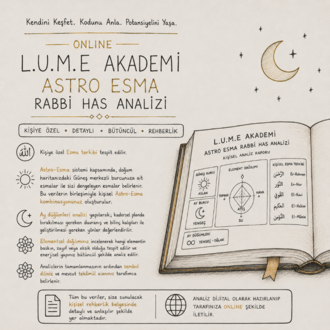 Kendini Keşfet. Kodunu Anla. Potansiyelini Yaşa.
ONLINE
L.U.M.E AKADEMİ
ASTRO ESMA
RABBİ HAS ANALİZİ
KİŞİYE ÖZEL • DETAYLI • BÜTÜNCÜL • REHBERLİK
Kişiye özel Esma terkibi tespit edilir.
Astro-Esma sistemi kapsamında, doğum
haritasındaki Güneş merkezli burcunuza ait
esmalar ile sizi dengeleyen esmalar belirlenir.
Bu verilerin birleşimiyle kişisel Astro-Esma
kombinasyonunuz oluşturulur.
Ay düğümleri analizi yapılarak; kadersel planda
bırakılması gereken davranış ve bilinç kalıpları ile
geliştirilmesi gereken yönler değerlendirilir.
Elementsel dağılımınız incelenerek hangi elementin
baskın, zayıf veya eksik olduğu tespit edilir ve
enerjisel yapınız bütüncül şekilde analiz edilir.
Analizlerin tamamlanmasının ardından
Tüm bu veriler, size sunulacak
kişisel rehberlik belgesinde
detaylı ve anlaşılır şekilde
yer almaktadır.
ANALİZ DİJİTAL OLARAK HAZIRLANIP
TARAFINIZA ONLINE ŞEKİLDE
İLETİLİR.
L.U.M.E AKADEMİ
ASTRO ESMA
RABBİ HAS ANALİZİ
KİŞİSEL ANALİZ RAPORU
GÜNEŞ BURCU
ASLAN
AY BURCU
TERAZİ
AY DÜĞÜMLERİ